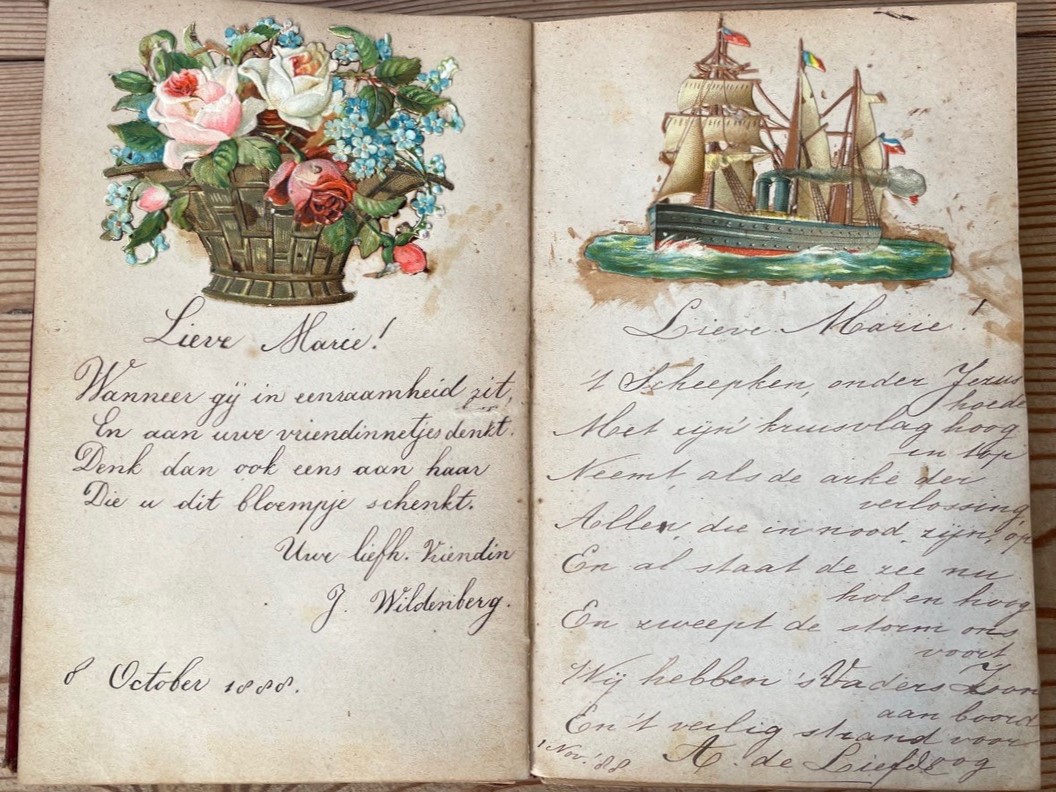 Lieve Marie!
Wanneer gij in eenzaamheid zit,
En aan uwe vriendinnetjes denkt.
Denk dan ook eens aan haar
Die u dit bloempje schenkt.
Uwe liefh. Vriendin
J. Wildenberg.
8 October 1888.
Lieve Marie!
't Scheepken, onder Jezus
hoede
Met zijn kruisvlag hoog
in top
Neemt als de arke der
verlossing,
Allen, die in nood zijn, op
En al staat de zee nu
hol en hoog
En zweept de storm ons
voort
Wij hebben 's Vaders Zoon
aan boord
En 't veilig strand voor
oog
1 Nov. '88
A. de Liefde